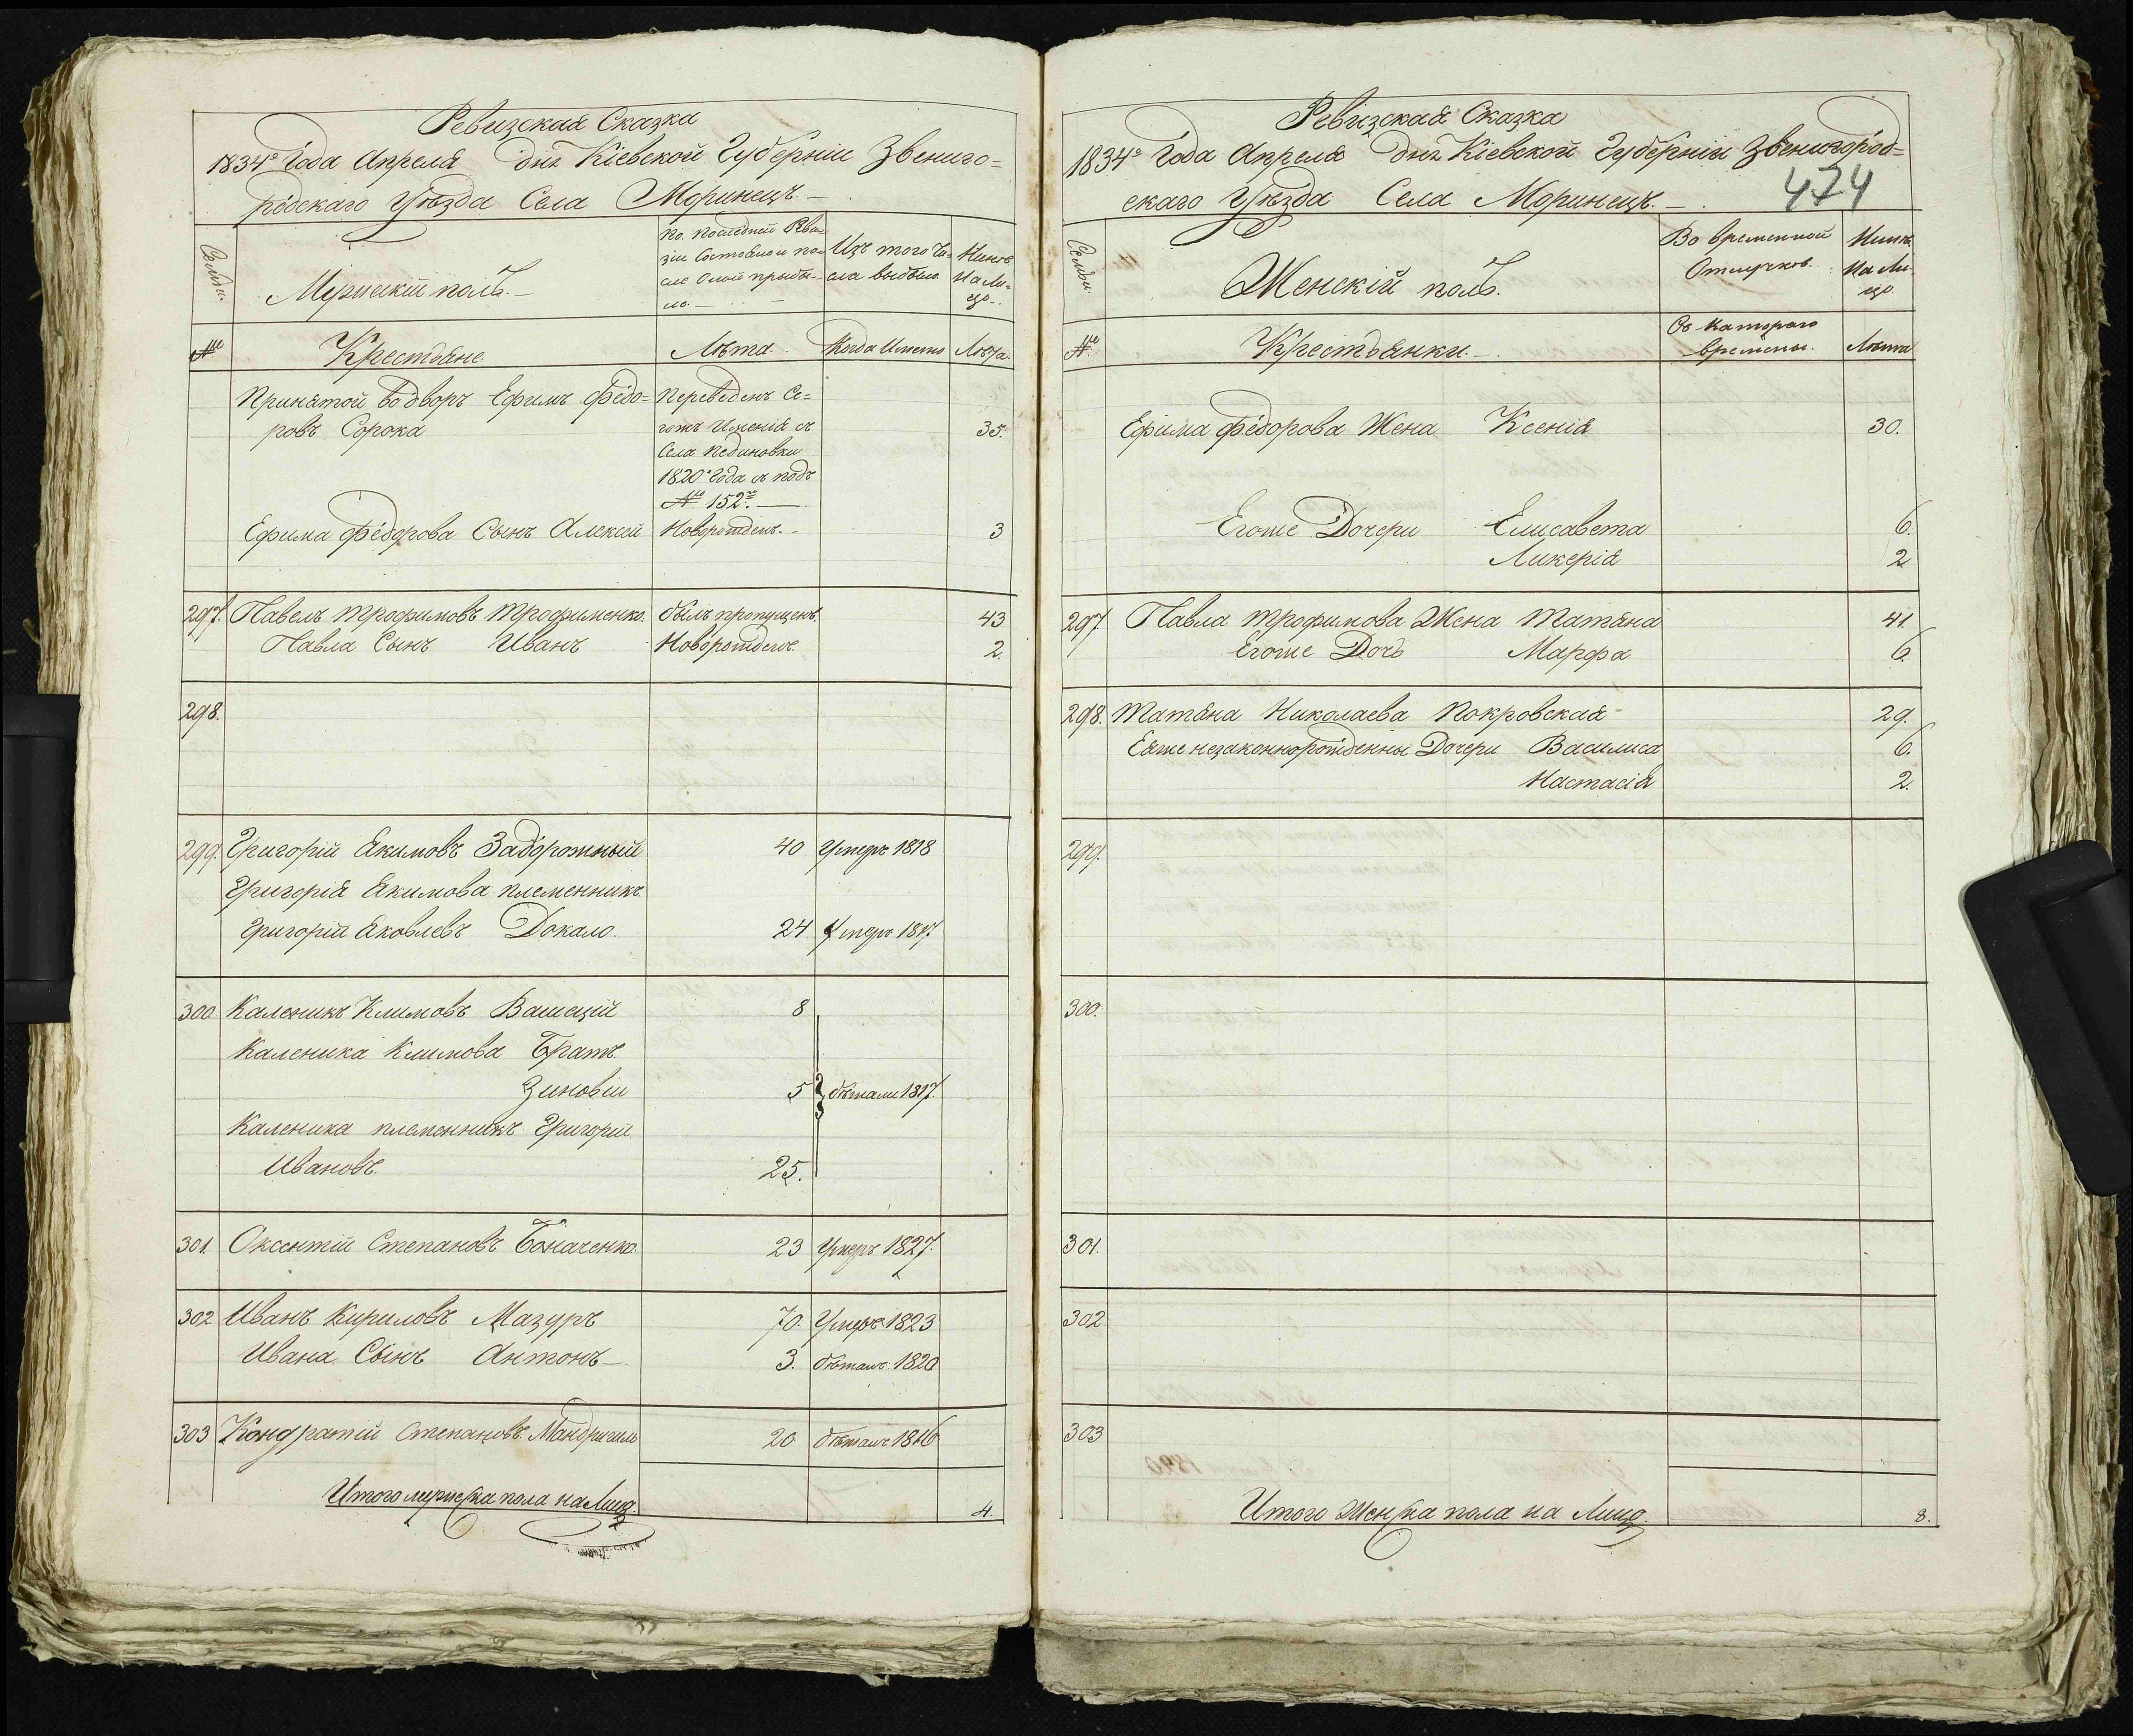 Ревизская Сказка
1834го Года Апреля дня Кіевской Губерніи Звениго=
родскаго Уѣзда Села Моринецъ.
Семьи.
Мужескій полъ.
По последней Реви=
зіи Состояло и по=
сле оной прибы=
ло.
Изъ того чи=
сла выбыло
Нынѣ
на Ли=
цо.
№
Крестьяне
Лѣта.
Когда Именно
Лѣта.
Принятой во дворъ Ефимъ Федо=
ровъ Сорока
Переведенъ Се=
гожъ Именія съ
Села Пединовки
1820го Года съ подъ
№ 152.
35.
Ефима Федорова Сынъ Алексей Новорожденъ. 3
297. Павелъ Трофимовъ Трофименко. былъ пропущенъ. 43
Павла Сынъ Иванъ Новорожденъ. 2.
298.
299. Григорій Якимовъ Задорожный 40 Умеръ 1818
Григорія Якимова племенникъ
Григорій Яковлевъ Докало. 24 Умеръ 1817.
300 Каленикъ Климовъ 8
Каленика Климова Братъ
Зиновіи 5 бѣжали 1817.
Каленика племенникъ Григорій
Ивановъ 25.
301. Оксентій Степановъ 23 Умеръ 1827.
302 Иванъ Кириловъ Мазуръ 70. Умеръ 1823
Ивана Сынъ Антонъ 3. бѣжалъ 1820
303 Кондратій Степановъ 20 бѣжалъ 1816
Итого мужеска пола на Лицо. 4.
Ревизская Сказка
1834го Года Апреля дня Кіевской Губерніи Звенигород=
скаго Уѣзда Села Моринецъ.
474
Семьи.
Женскій полъ.
Во временной
Отлучкѣ.
Нынѣ
на Ли=
цо.
№
Крестьянки.
Съ котораго
времени.
Лѣта
Ефима Федорова Жена Ксенія 30.
Егоже Дочери Елисавета 6.
Ликерія 2
297. Павла Трофимова Жена Татьяна 41.
Егоже Дочь Марфа 6.
298. Татьяна Николаева Покровская 29.
Еяже незаконнорожденны Дочери Василиса 6.
Настасія 2.
299.
300.
301.
302
303
Итого Женска пола на Лицо. 8.